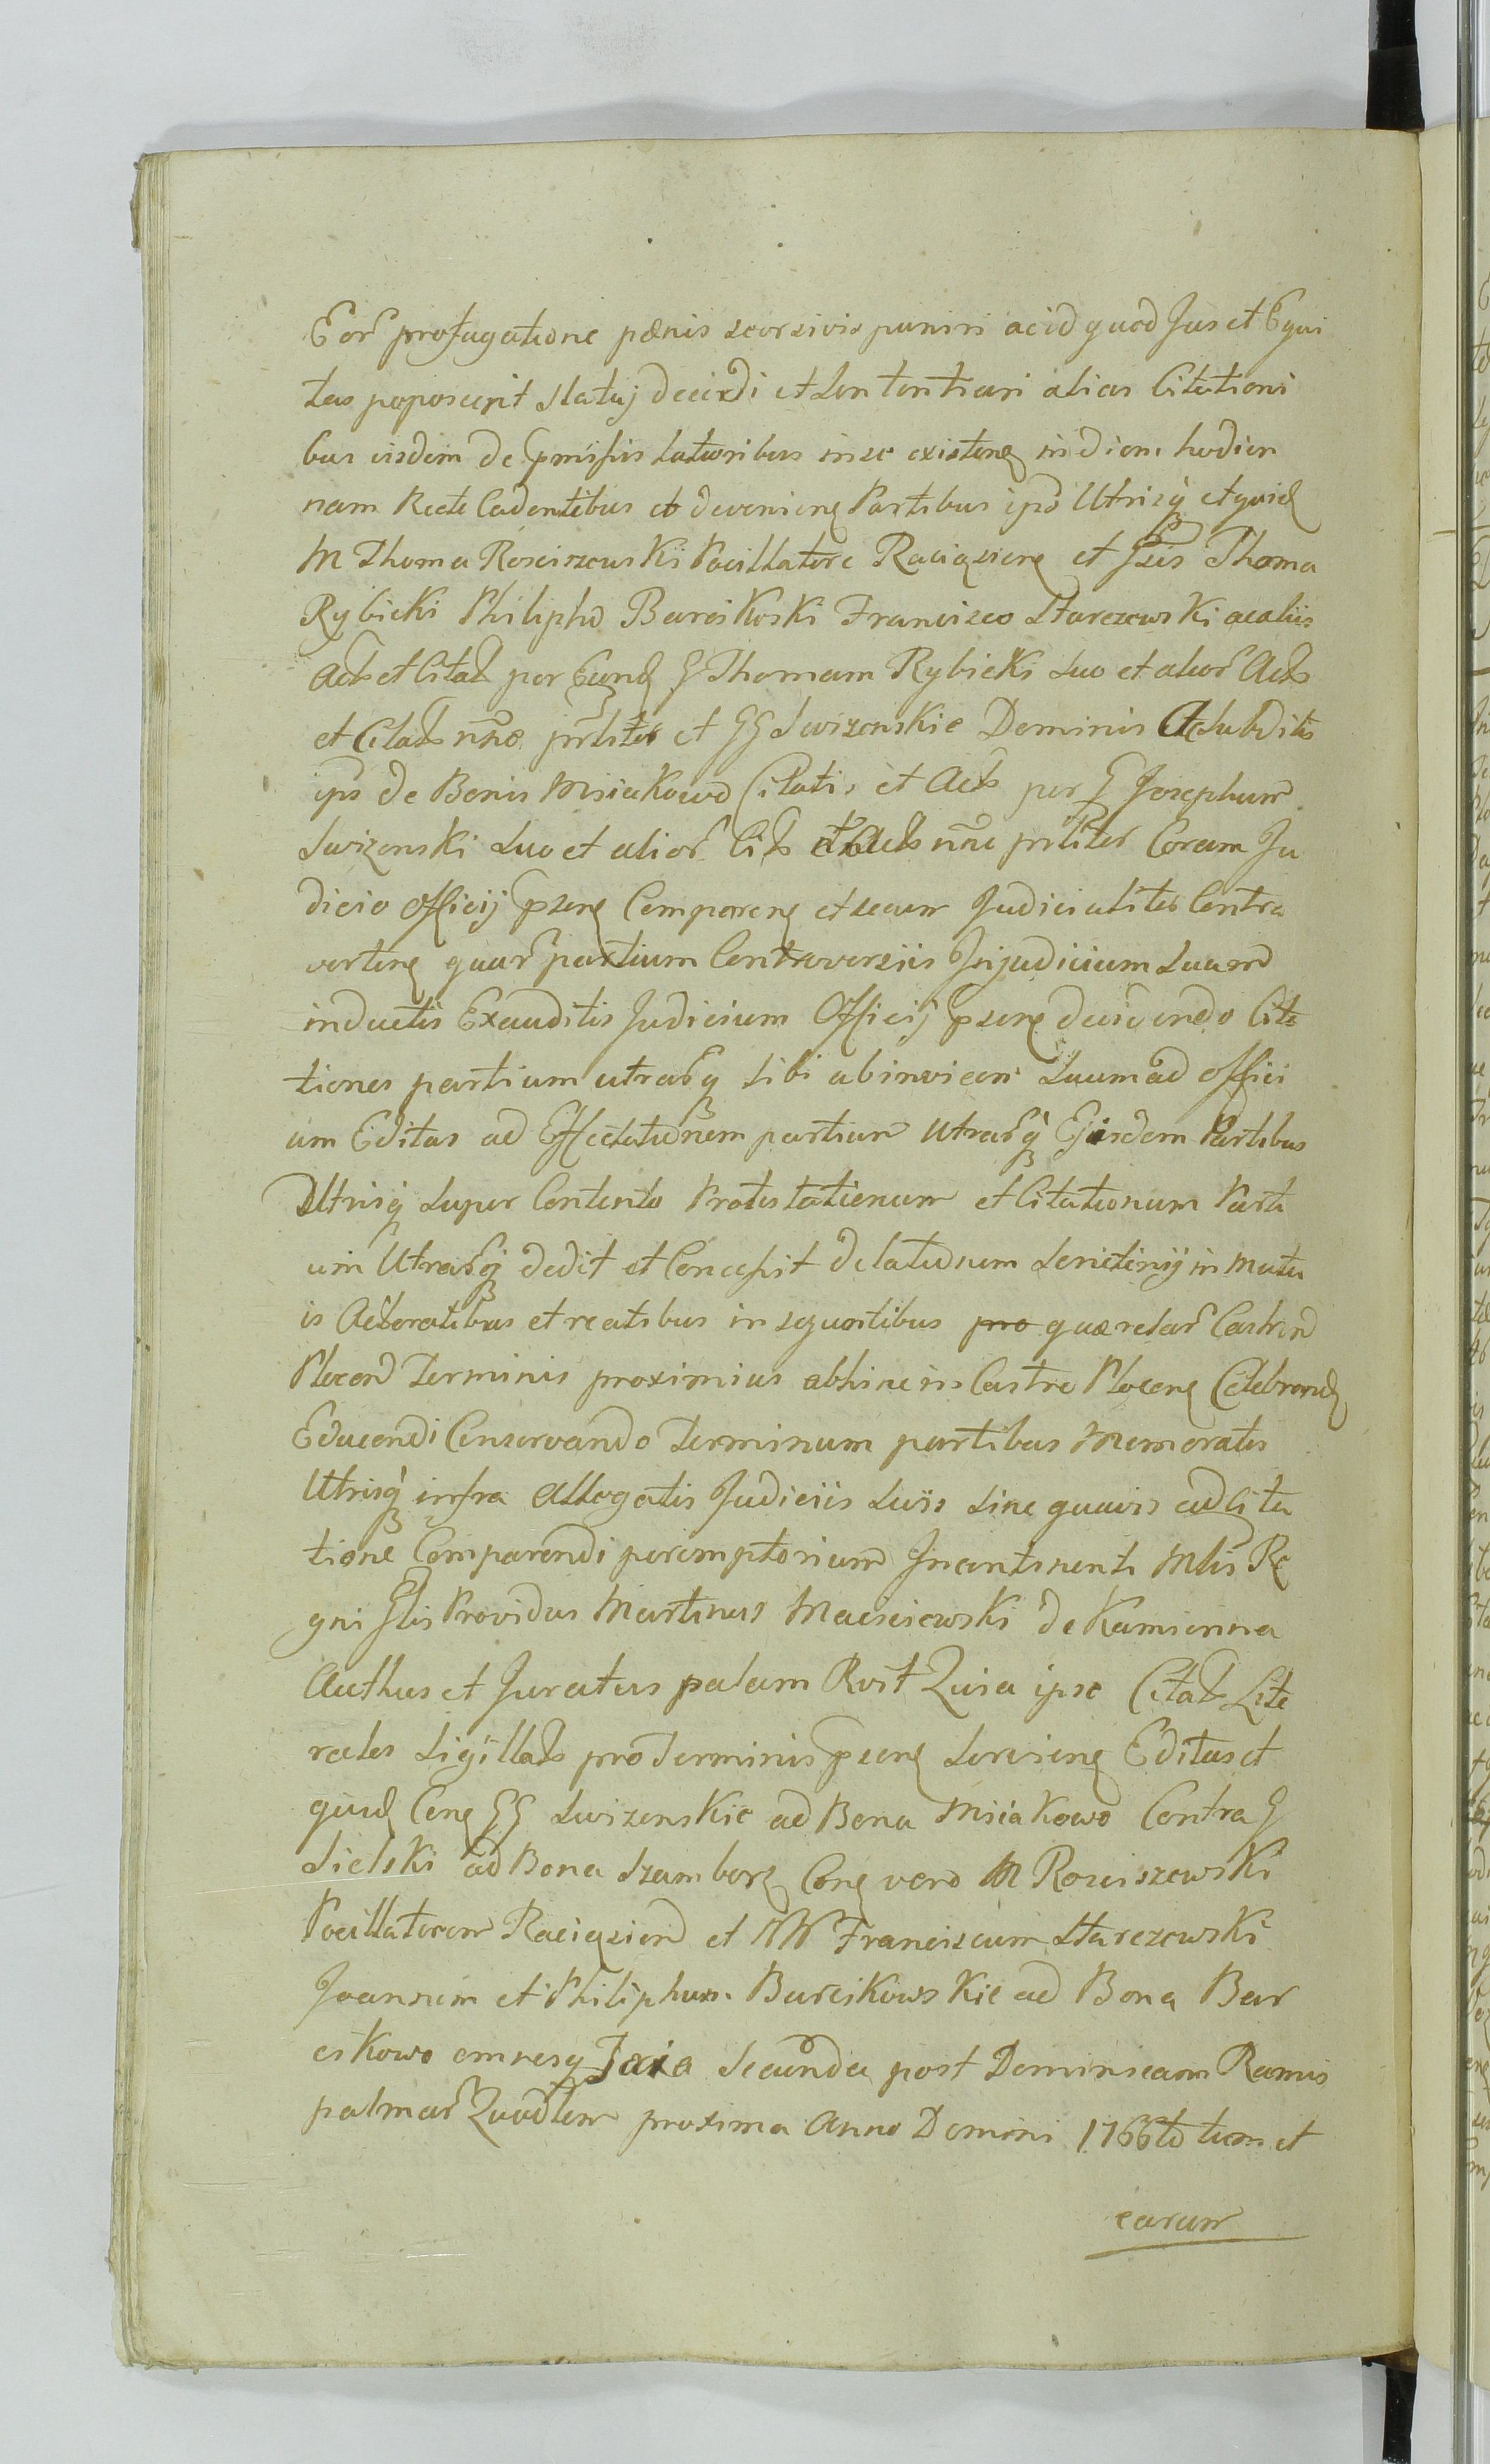 Eor profugatione pænis seorsivis puniri acid quod Jus et Equi
tas poposcerit statuj decidi et Sententiari alias Citationi
bus eisdem de pmissis latioribus in se existen in diem hodier
nam Recte Cadentibus et devenien Partibus ipsis Utrisq et quid
M Thoma Rosciszewski Pocillatore Raciązien et Gsis Thoma
Rybicki Philipho Barcikoski Francisco Starczewski ac aliis
Act et Citat per Eund G Thomam Rybicki Suo et alior Act
et Citat nne prliter et GG Swizenskie Dominis Ac Subditis
ips de Bonis Msiakowo Citatis et Act per G Josephum
Swizenski Suo et alior Cit et Act nne prliter Coram Ju
dicio Officij psen Comparen et secum Judicialiter Contra
verten quar partium Controversiis In judicium Suum
inductis Exauditis Judicium Officij psen decidendo Cita
tiones partium utrarq sibi abinvicem Suum ad Offici
um Editas ad Affectationem partium Utrarq Ejisdem Partibus
Utrisq super Contento Protestationum et Citationum Parti
um Utrarq dedit et Concessit delationem Scrutinij in mutu
is Actoratibus et reatibus insequentibus pro quærelar Castren
Plocen Terminis proximius abhinc in Castro Plocen Celebrand
Educendi Conservando Terminum partibus Memoratis
Utrisq infra Allegatis Judiciis Suis Sine quavis adcita
tione Comparendi peremptorium Incontinenti Mlis Re
gni Glis Providus Martinus Maciejewski de Kamienna
Authus et Juratus palam Rcit Quia ipse Citat Lite
rales Sigillat pro Terminis psen Sercien Editas et
quid Con GG Swizenskie ad Bona Msiakowo Contra G
Sielski ad Bona Szembor Con vero M Rosciszewski
Pocillatorem Raciązien et NN Franciscum Starczewski
Joannem et Philiphum Barcikowskie ad Bona Bar
cikowo omnesq Faia Secunda post Dominicam Ramis
palmar Quadlem proxima Anno Domini 1766to tum et
earum